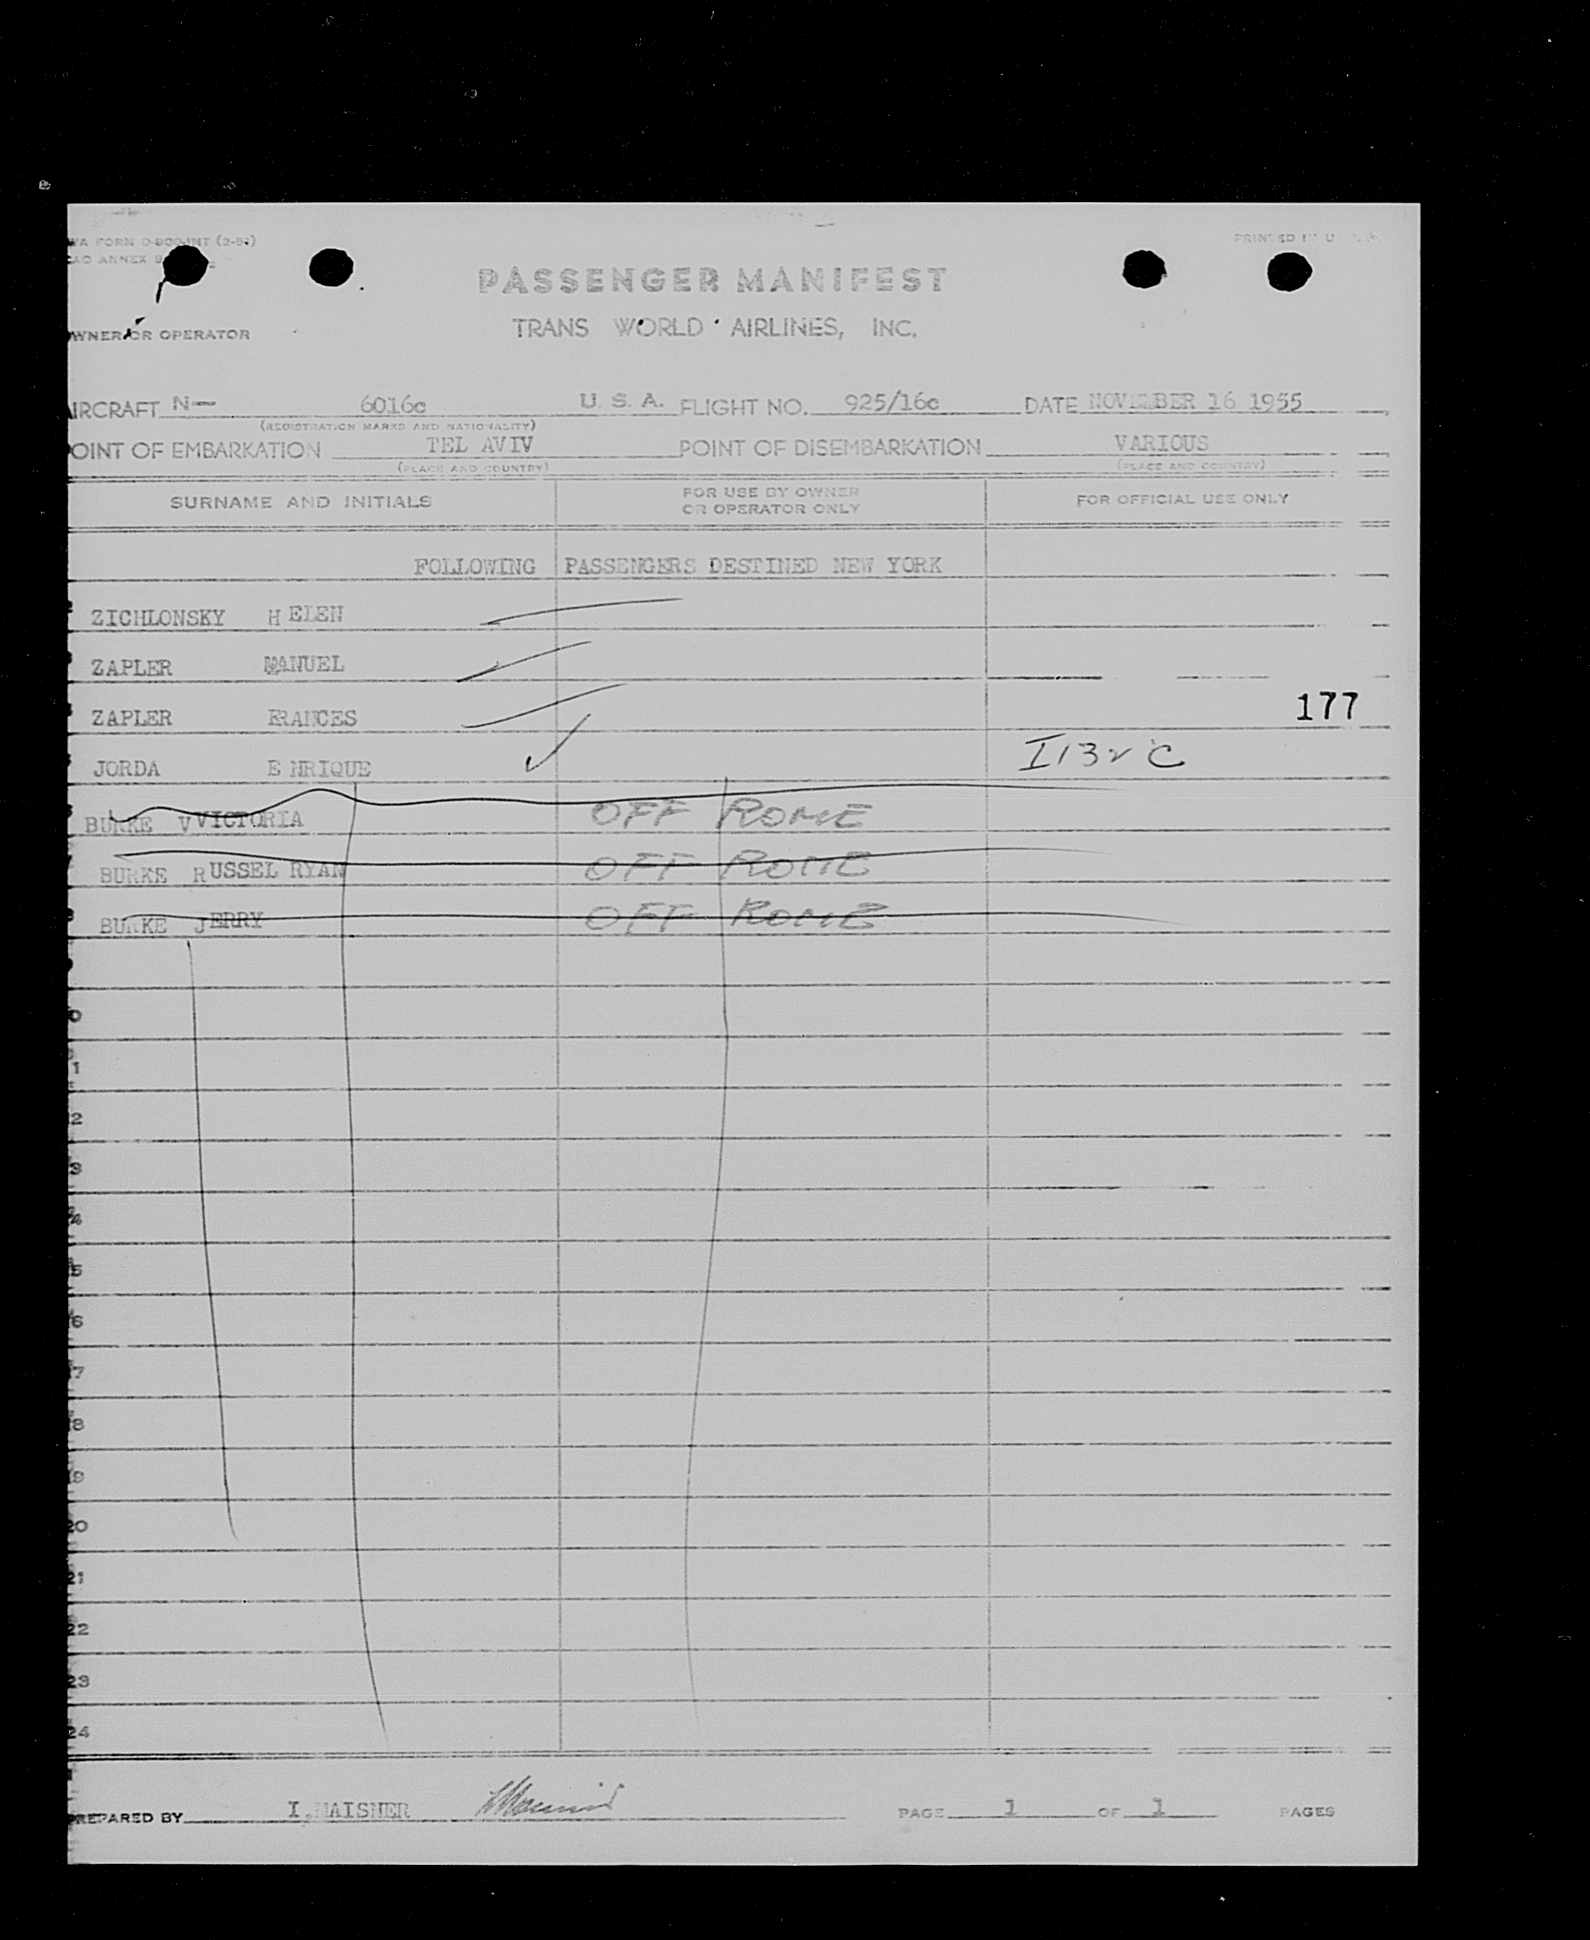 WA FORM
PRINTED IN U
PASSENGER MANIFEST
TRANS WORLD AIRLINES, INC.
WNER OR OPERATOR
IRCRAFT N— 6016c U. S. A. FLIGHT NO. 925/16c DATE NOVEMBER 16 1955
(REGISTRATION MARKS AND NATIONALITY)
OINT OF EMBARKATION TEL AVIV POINT OF DISEMBARKATION VARIOUS
(PLACE AND COUNTRY) (PLACE AND COUNTRY)
SURNAME AND INITIALS FOR USE BY OWNER OR OPERATOR ONLY FOR OFFICIAL USE ONLY
FOLLOWING PASSENGERS DESTINED NEW YORK
ZICHLONSKY HELEN
ZAPLER MANUEL
ZAPLER FRANCES 177
JORDA ENRIQUE I132C
BURKE VVICTORIA OFF ROME
BURKE RUSSEL RYAN OFF ROME
BURKE JERRY OFF ROME
0
1
2
3
4
5
6
7
8
9
20
21
22
23
24
REPARED BY I. MAISNER PAGE 1 OF 1 PAGES